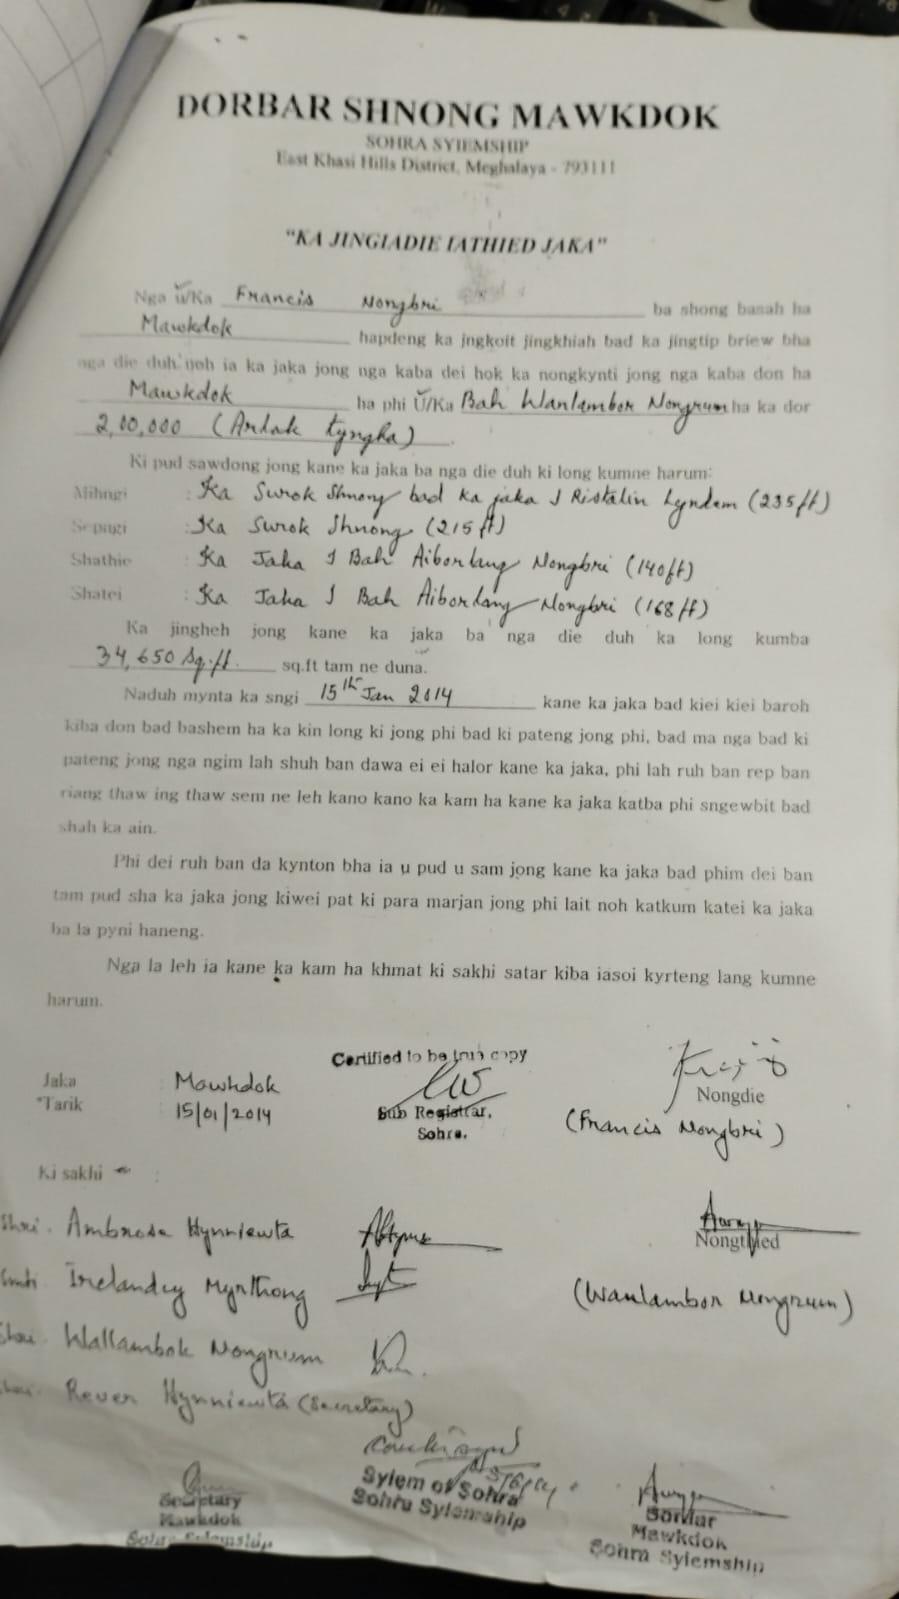 DORBAR SHNONG MAWKDOK
SOHRA SYIEMSHIP
East Khasi Hills District, Meghalaya - 793111
"KA JINGIADIE IATHIED JAKA"
Nga U/Ka Francis Nongbri ba shong basah ha
Mawkdok hapdeng ka jngkoit jingkhiah bad ka jingtip briew bha
nga die duh noh ia ka jaka jong nga kaba dei hok ka nongkynti jong nga kaba don ha
Mawkdok ha phi U/Ka Bah Wanlambor Nongrum ha ka dor
2,00,000 (Arlak tyngka).
Ki pud sawdong jong kane ka jaka ba nga die duh ki long kumne harum:
Mihngi : Ka Surok Shnong bad ka jaka J Ristalin Lyndem (235 ft)
Sepngi : Ka Surok Shnong (215 ft)
Shathie : Ka Jaka J Bah Aiborlang Nongbri (140 ft)
Shatei : Ka Jaka J Bah Aiborlang Nongbri (168 ft)
Ka jingheh jong kane ka jaka ba nga die duh ka long kumba
34,650 Sq.ft. sq.ft tam ne duna.
Naduh mynta ka sngi 15th Jan 2014 kane ka jaka bad kiei kiei baroh
kiba don bad bashem ha ka kin long ki jong phi bad ki pateng jong phi, bad ma nga bad ki
pateng jong nga ngim lah shuh ban dawa ei ei halor kane ka jaka, phi lah ruh ban rep ban
riang thaw ing thaw sem ne leh kano kano ka kam ha kane ka jaka katba phi sngewbit bad
shah ka ain.
Phi dei ruh ban da kynton bha ia u pud u sam jong kane ka jaka bad phim dei ban
tam pud sha ka jaka jong kiwei pat ki para marjan jong phi lait noh katkum katei ka jaka
ba la pyni haneng.
Nga la leh ia kane ka kam ha khmat ki sakhi satar kiba iasoi kyrteng lang kumne
harum.
Certified to be true copy
Sub Registrar,
Sohra.
Jaka : Mawkdok
"Tarik : 15/01/2014
Nongdie
(Francis Nongbri)
Ki sakhi :
Shri. Ambrose Hynniewta
Smti Irelandcy Myrthong
Shri. Wallambok Nongrum
Shri. Rever Hynniewta (Secretary)
Nongthied
(Wanlambor Nongrum)
Secretary
Mawkdok
Sohra Syiemship
Syiem of Sohra
Sohra Syiemship
Sordar
Mawkdok
Sohra Syiemship